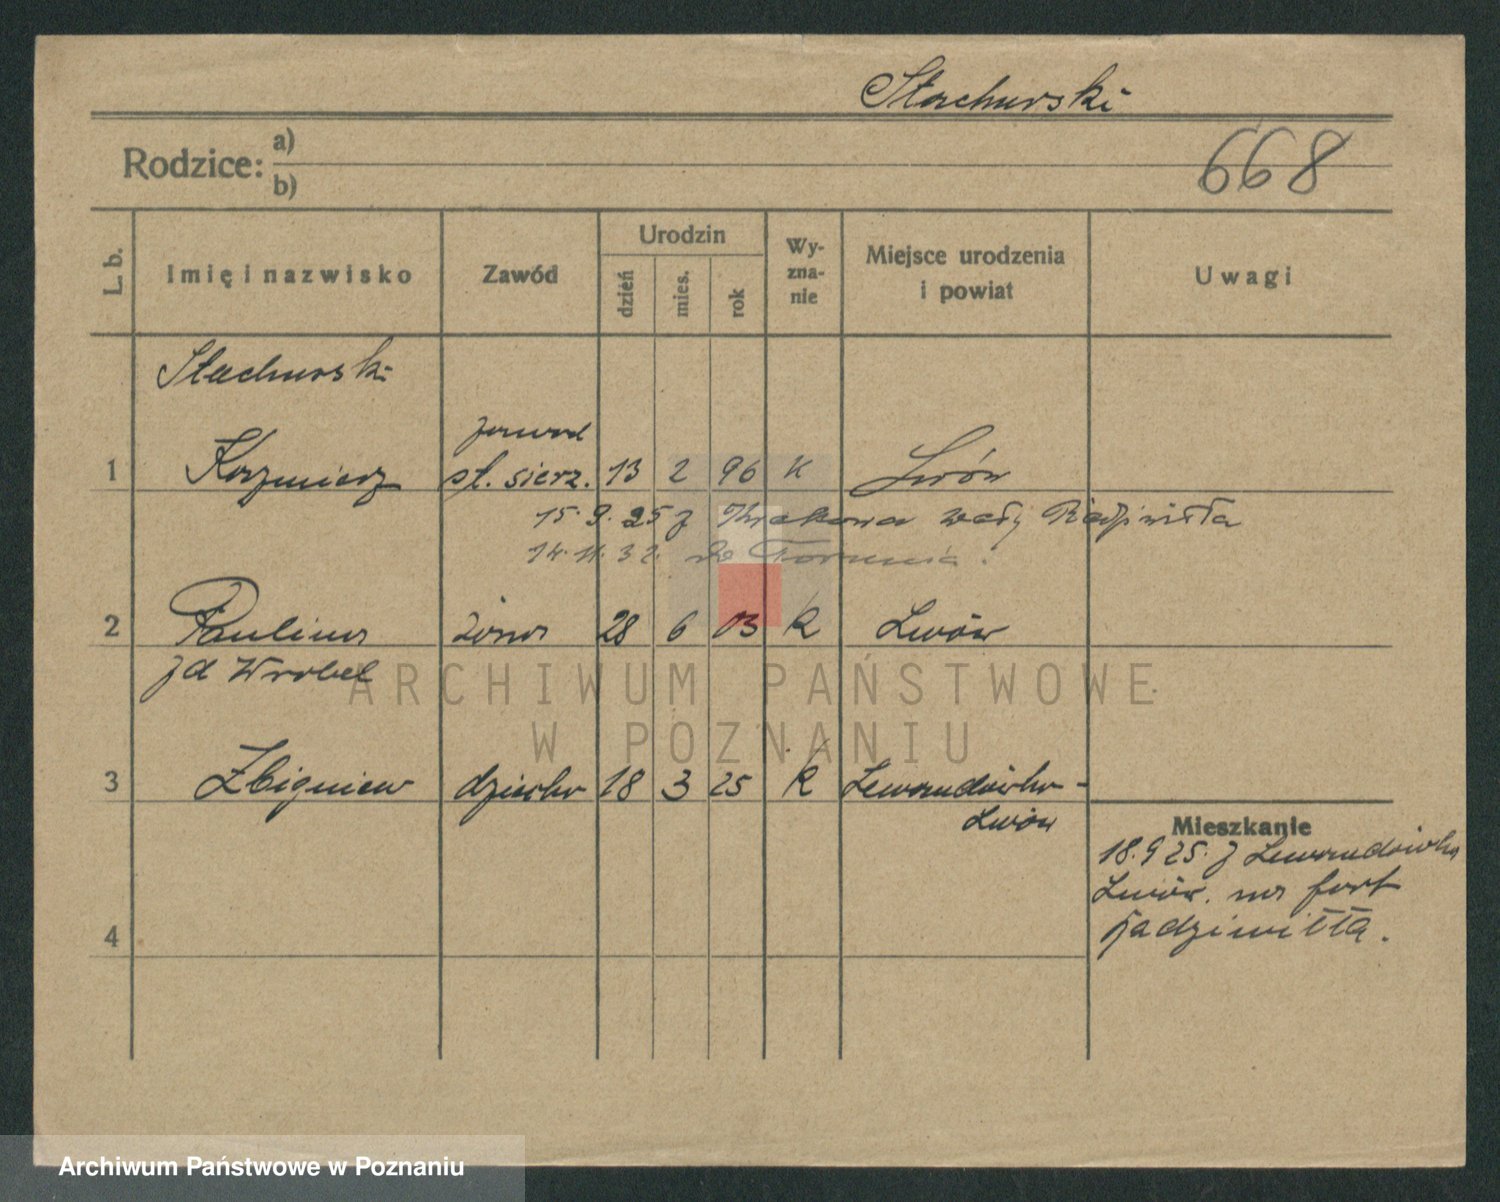 Stachurski
Rodzice: a)
b)
668
L. b. Imię i nazwisko Zawód Urodzin dzień mies. rok Wyznanie Miejsce urodzenia i powiat Uwagi
Stachurski
zawod
1 Kazmierz st. sierz. 13 2 96 K Lwów
15.9.25 z Krakowa wały
14.11.32. do Torunia.
2 Paulina żona 28 6 03 K Lwów
zd Wrobel
ARCHIWUM PAŃSTWOWE
W POZNANIU
3 Zbigniew dziecko 18 3 25 K Lewandówka-
Lwów
Mieszkanie
18.9 25. z Lewandówka
Lwów. na fort
Radziwiłła.
4
Archiwum Państwowe w Poznaniu